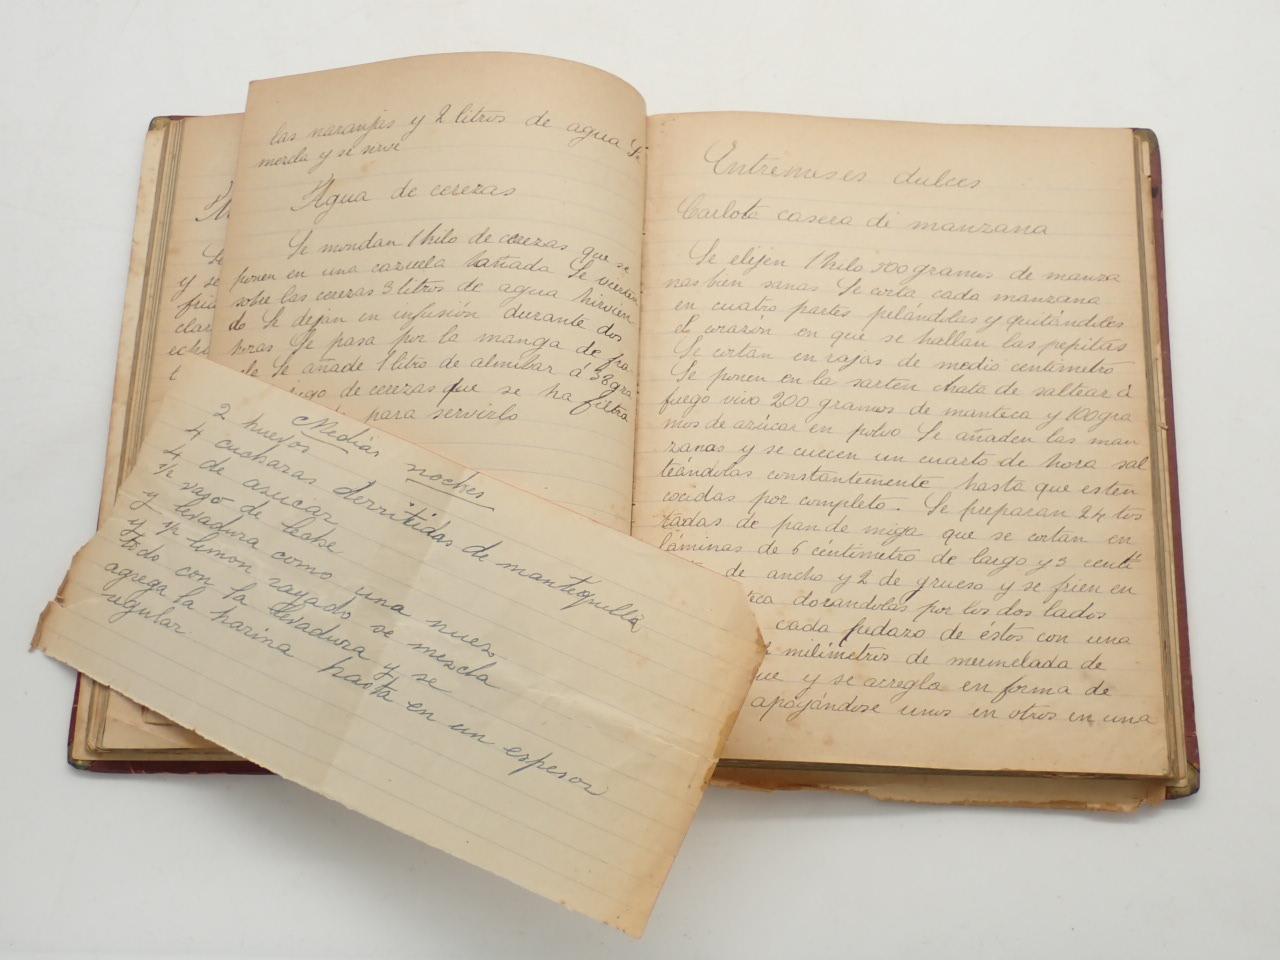 las naranjas y 2 litros de agua Se
mezcla y se sirve
Agua de cerezas
Se mondan 1 kilo de cerezas que se
ponen en una cazuela bañada Se vierten
sobre las cerezas 3 litros de agua hirvien
do Se dejan en infusión durante dos
horas Se pasa por la manga de fra
Se añade 1 litro de almibar á 38 gra
jugo de cerezas que se ha filtra
para servirlo
Se
y se
clar
Medias noches
2 huevos
4 cucharas derritidas de mantequilla
4 de asucar
1/2 vaso de leche
y levadura como una nuez
y 1/2 limon rayado se mezcla
todo con la levadura y se
agrega la harina hasta en un espesor
regular.
Entremeses dulces
Carlota casera di manzana
Se elijen 1 kilo 500 gramos de manza
nas bien sanas Se corta cada manzana
en cuatro partes pelándolas y quitándoles
el corazón en que se hallan las pepitas
Se cortan en rajas de medio centímetro
Se ponen en la sarten chata de saltear á
fuego vivo 200 gramos de manteca y 100 gra
mos de azúcar en polvo Se añaden las man
zanas y se cuecen un cuarto de hora sal
teándolas constantemente hasta que esten
cocidas por completo. Se preparan 24 tos
tadas de pan de miga que se cortan en
láminas de 6 céntimetro de largo y 3 centi
de ancho y 2 de grueso y se frien en
teca dorandolas por los dos lados
cada pedazo de éstos con una
milímetros de mermelada de
que y se arregla en forma de
apoyándose unos en otros en una